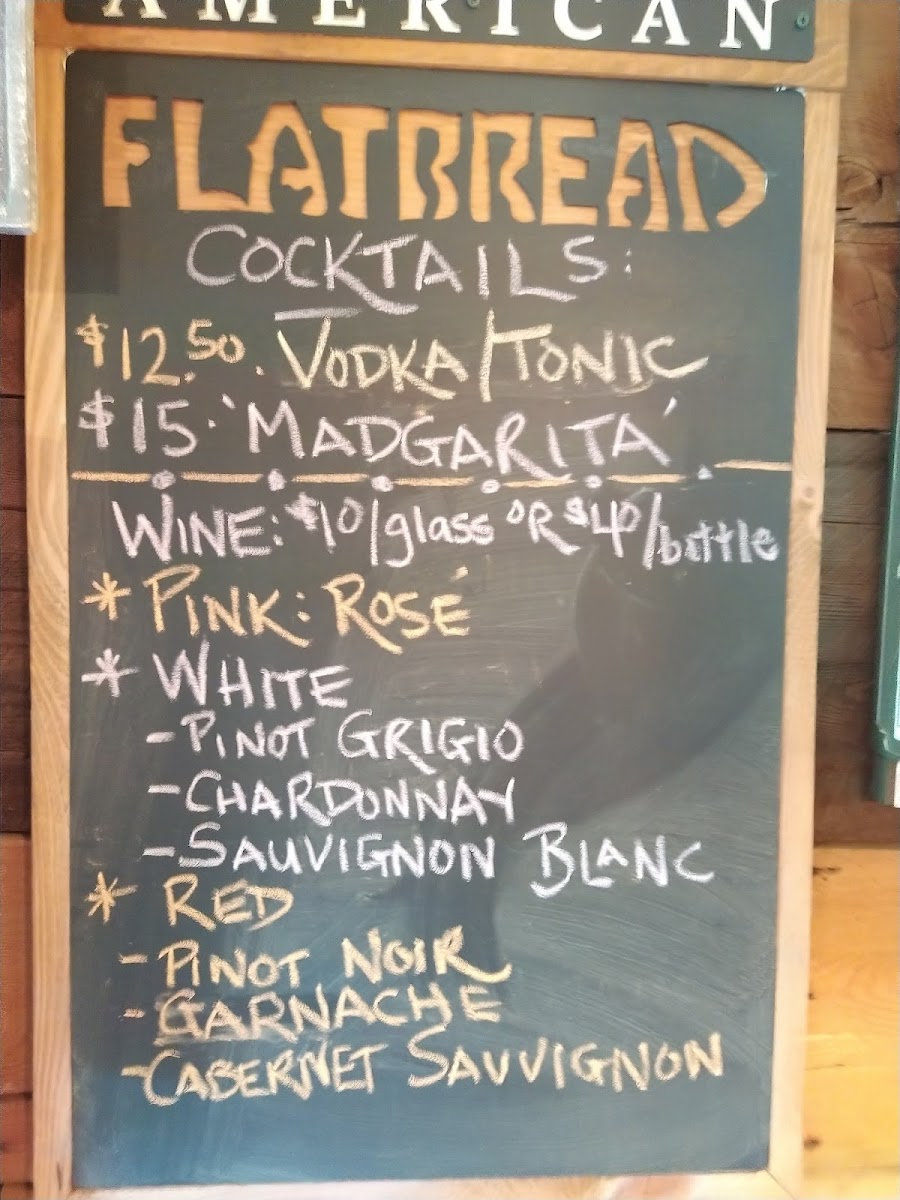 AMERICAN
FLATBREAD
COCKTAILS:
$12.50. VODKA/TONIC
$15. 'MADGARITA'
WINE: $10/glass OR $40/bottle
* PINK: ROSÉ
* WHITE
- PINOT GRIGIO
- CHARDONNAY
- SAUVIGNON BLANC
* RED
- PINOT NOIR
- GARNACHE
- CABERNET SAUVVIGNON